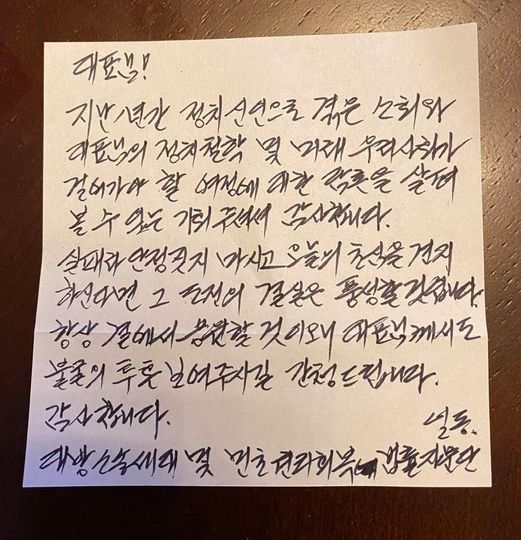 대표님!
지난 1년간 정치 신인으로 겪은 소회와
대표님의 정치철학 및 미래 우리사회가
걸어가야 할 여정에 대한 을 살펴
볼 수 있는 기회 주셔서 감사합니다.
실패라 단정짓지 마시고 오늘의 초심을 견지
하신다면 그 도전의 결실은 풍성할 것입니다.
항상 곁에서 응원할 것이오니 대표님께서도
불굴의 투혼 보여주시길 간청드립니다.
감사합니다.
일동.
및 민초권리회복 법률자문단